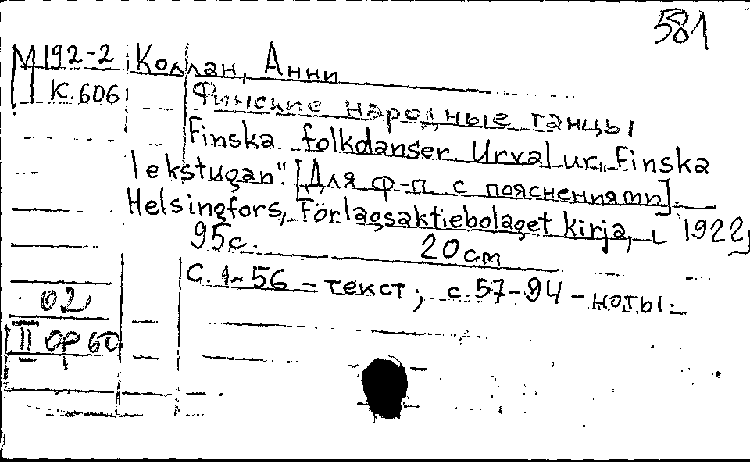 581
М 192-2 Коллан, Анни
К.606 Финские народные танцы
Finska folkdanser Urval ur „Finska
lekstugan". [Для ф-п. с пояснениями].
Helsingfors, Förlagsaktiebolaget Kirja, [1922]
95с. 20cm
С. 1-56 – текст; с.57-94 – ноты.
02
II ор 60